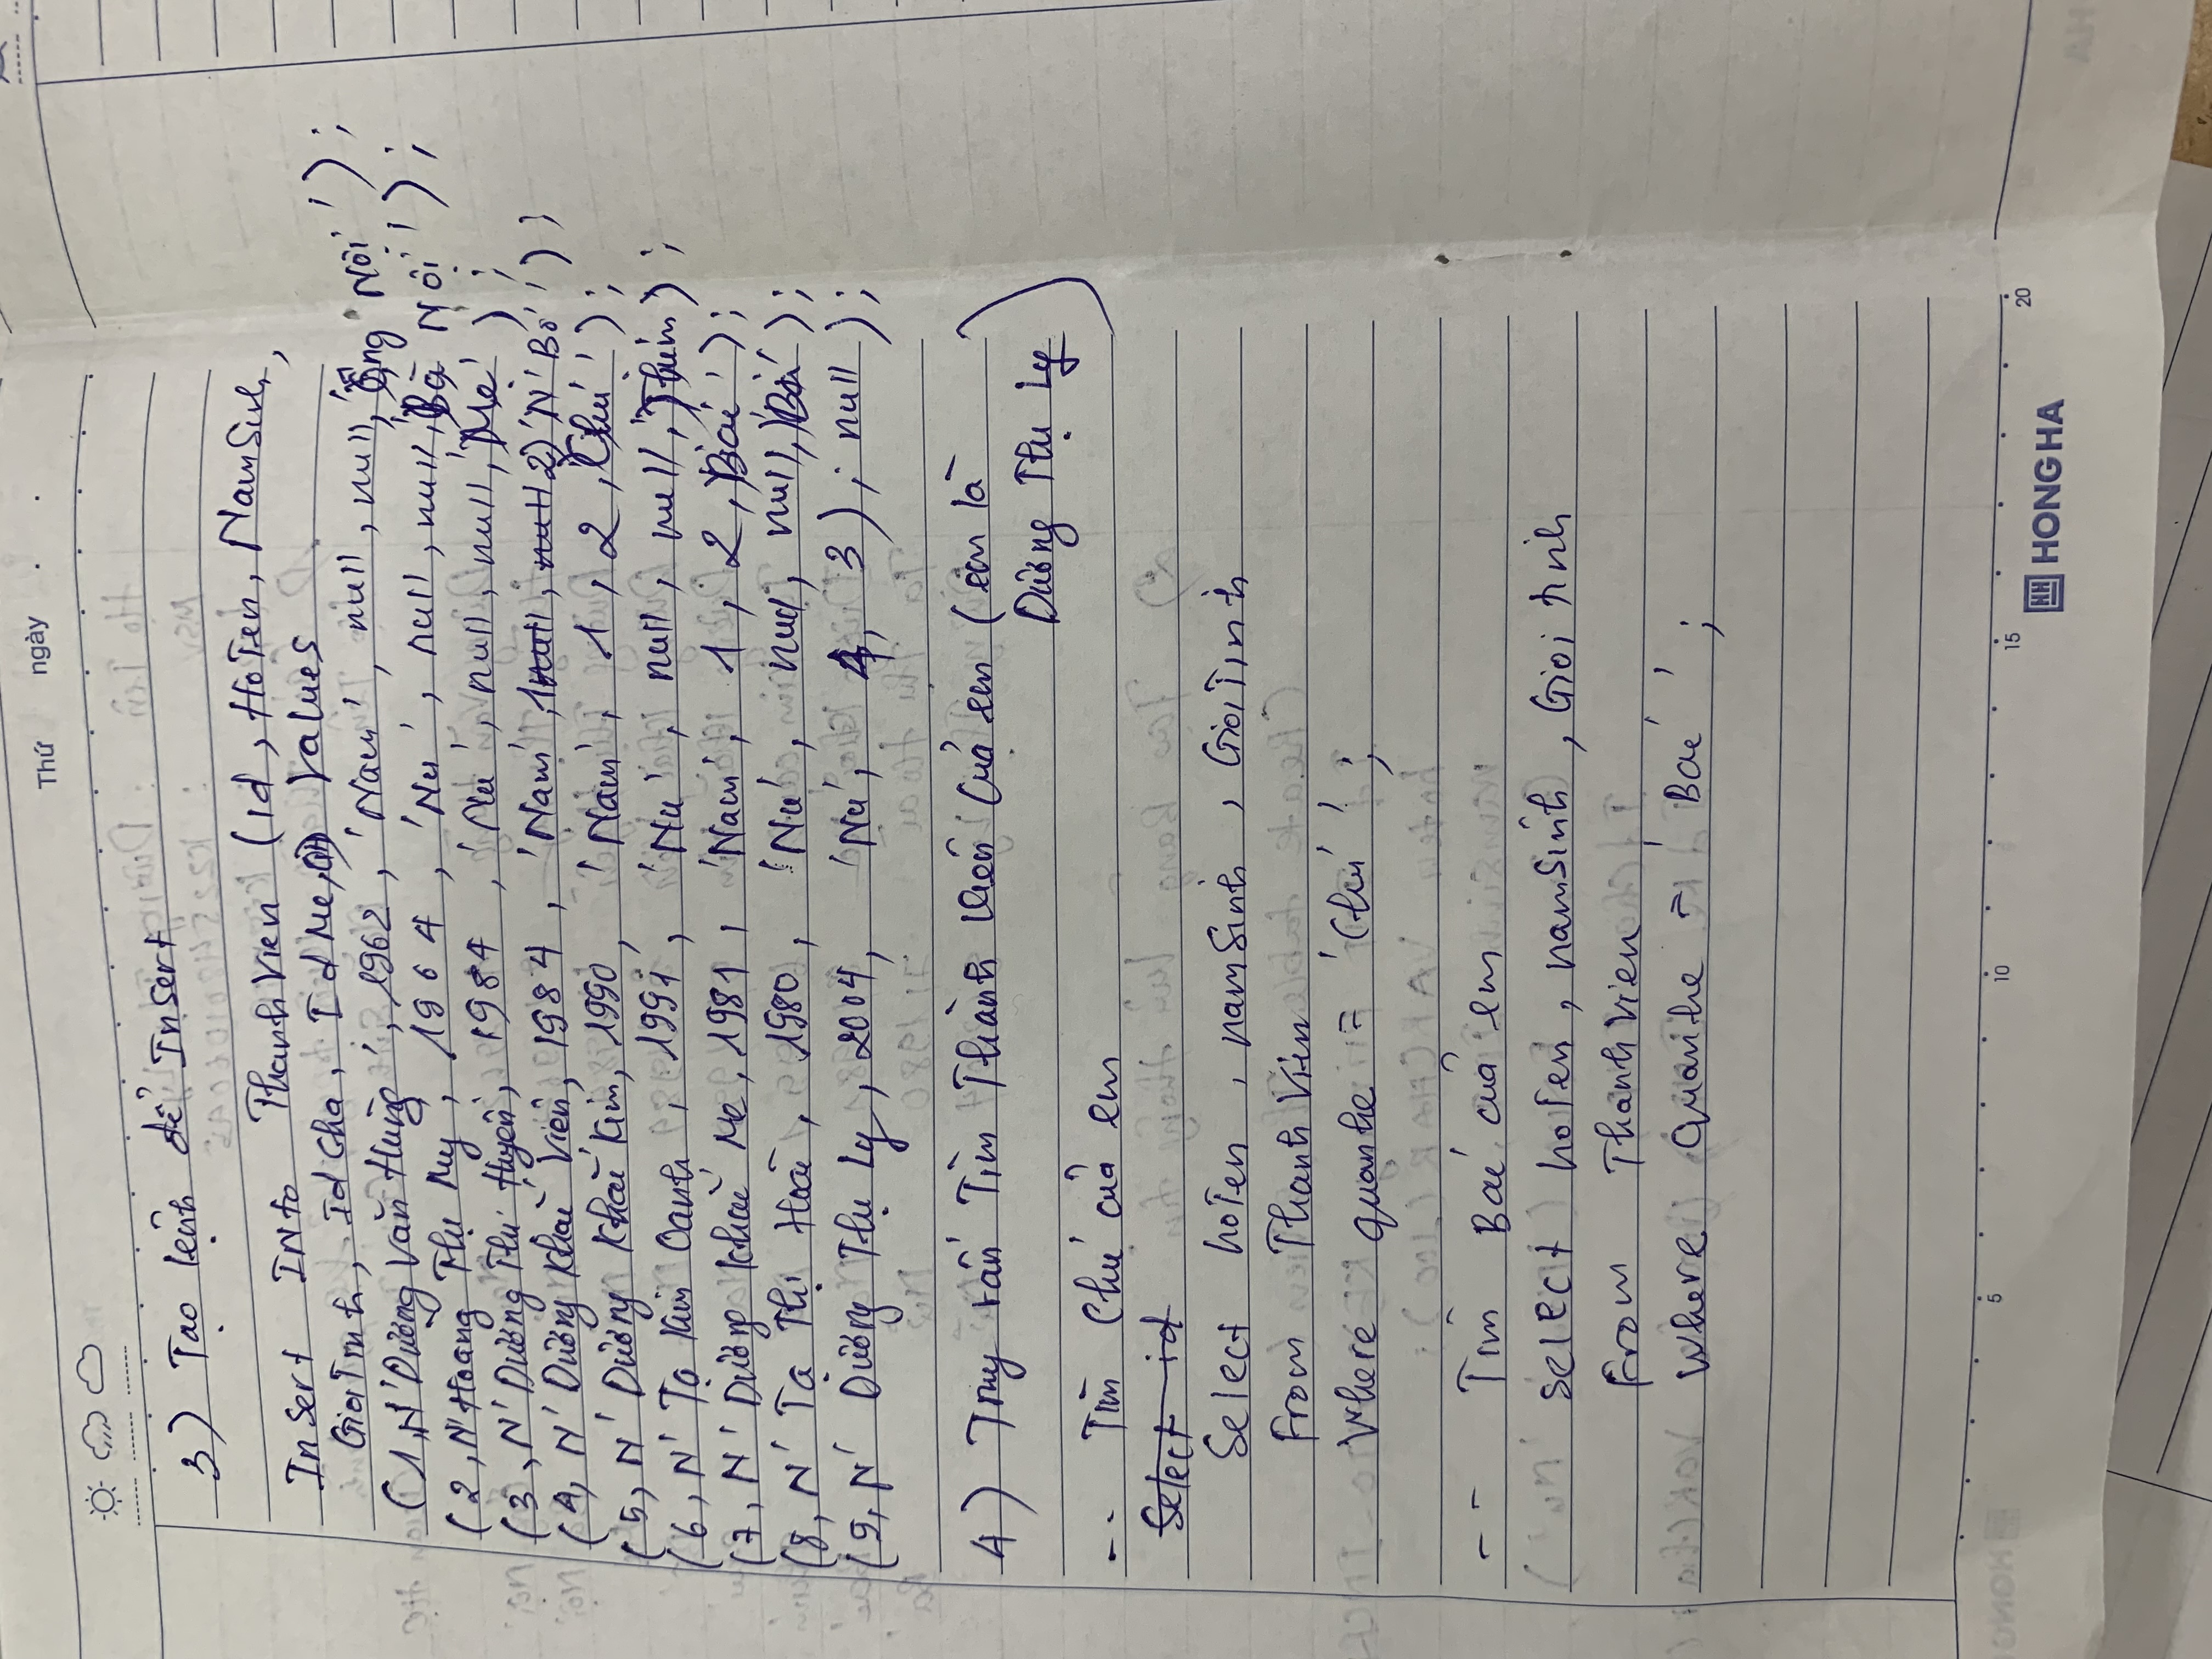 Thứ ngày . .
3) Tạo lệnh để Insert
Insert INto ThanhVien (id, HoTen, NamSinh,
GioiTinh, IdCha, IdMe, ) Values
(1, N' Dương Văn Hùng', 1962, 'Nam', null, null, 'Ông Nội');
(2, N' Hoàng Thị My, 1964, 'Nu', null, null, 'Bà Nội');
(3, N' Dương Thị Huyền, 1984, 'Nu', null, null, 'Mẹ');
(4, N' Dương Khắc Viên, 1984, 'Nam', 1 null, null 2) 'N' Bố');
(5, N' Dương Khắc Kim, 1990, 'Nam', 1, 2, 'Chú');
(6, N' Tạ Kim Oanh, 1991, 'Nu', null, null, 'Thím);
(7, N' Dương Khắc Me, 1981, 'Nam', 1, 2, 'Bác');
(8, N' Tạ Thị Hoài, 1980, 'Nu', null, null, 'Bá');
(9, N' Dương Thị Ly, 2004, 'Nu', 4, 3); null);
4) Truy vấn Tìm Thành viên của em (em là
Dương Thị Ly)
-- Tìm Chú của em
Select id
Select hoTen, namSinh, GioiTinh
From ThanhVien
Where quanhe = 'Chú';
-- Tìm Bác của em
select hoTen, namSinh, Gioi tinh
From ThanhVien
Where Quanhe = 'Bác';
5 10 15 20
HONG HA